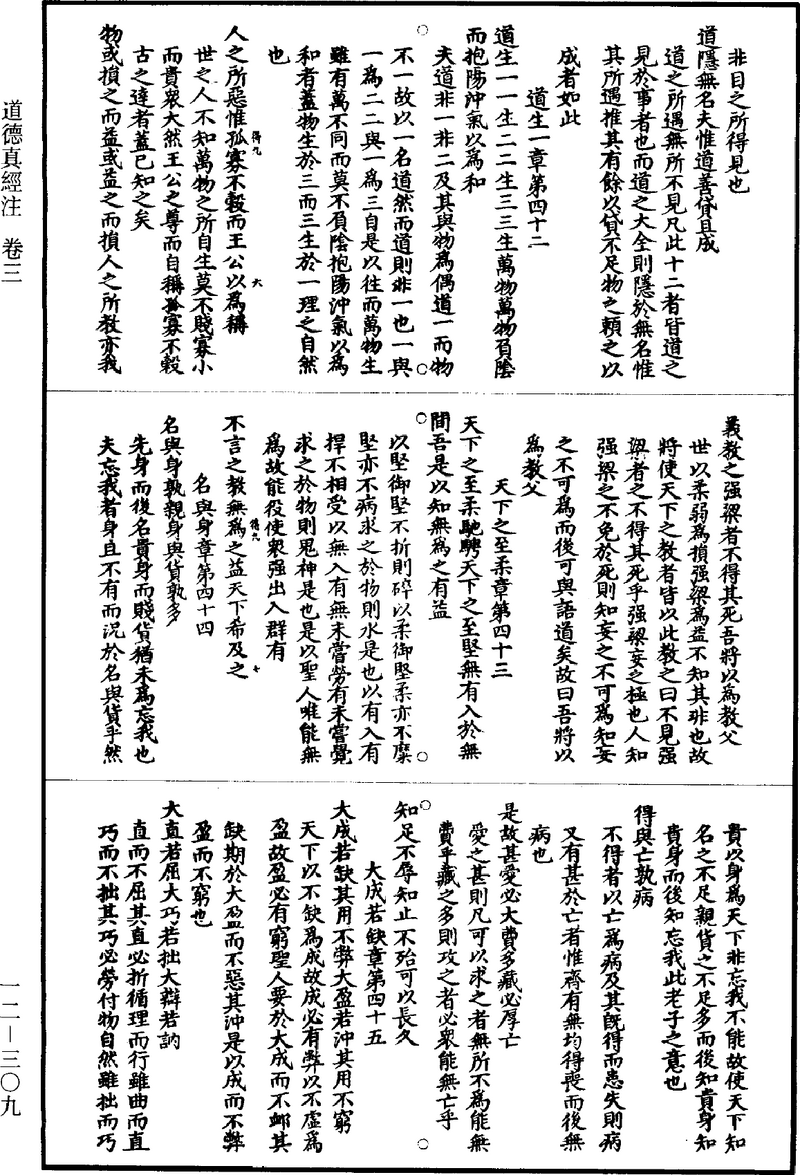 道德真經注　卷三
一二—三〇九
非目之所得見也
道隱無名夫惟道善貸且成
道之所遇無所不見凡此十二者皆道之
見於事者也而道之大全則隱於無名惟
其所遇推其有餘以貸不足物之賴之以
成者如此
道生一章第四十二
道生一一生二二生三三生萬物萬物負陰
而抱陽沖氣以為和
夫道非一非二及其與物為偶道一而物
不一故以一名道然而道則非一也一與
一為二二與一為三自是以往而萬物生
雖有萬不同而莫不負陰抱陽沖氣以為
和者蓋物生於三而三生於一理之自然
也
人之所惡惟孤寡不穀而王公以為稱
世之人不知萬物之所自生莫不賤寡小
而貴衆大然王公之尊而自稱孤寡不穀
古之達者蓋已知之矣
物或損之而益或益之而損人之所教亦我
義教之强梁者不得其死吾將以為教父
世以柔弱為損强梁為益不知其非也故
將使天下之教者皆以此教之曰不見强
梁者之不得其死乎强梁妄之極也人知
强梁之不免於死則知妄之不可為知妄
之不可為而後可與語道矣故曰吾將以
為教父
天下之至柔章第四十三
天下之至柔馳騁天下之至堅無有入於無
間吾是以知無為之有益
以堅御堅不折則碎以柔御堅柔亦不糜
堅亦不病求之於物則水是也以有入有
捍不相受以無入有無未嘗勞有未嘗覺
求之於物則鬼神是也是以聖人唯能無
為故能役使衆强出入群有
不言之教無為之益天下希及之
名與身章第四十四
名與身孰親身與貨孰多
先身而後名貴身而賤貨猶未為忘我也
夫忘我者身且不有而況於名與貨乎然
貴以身為天下非忘我不能故使天下知
名之不足親貨之不足多而後知貴身知
貴身而後知忘我此老子之意也
得與亡孰病
不得者以亡為病及其既得而患失則病
又有甚於亡者惟齊有無均得喪而後無
病也
是故甚愛必大費多藏必厚亡
愛之甚則凡可以求之者無所不為能無
費乎藏之多則攻之者必衆能無亡乎
知足不辱知止不殆可以長久
大成若缺章第四十五
大成若缺其用不弊大盈若沖其用不窮
天下以不缺為成故成必有弊以不虛為
盈故盈必有窮聖人要於大成而不卹其
缺期於大盈而不惡其沖是以成而不弊
盈而不窮也
大直若屈大巧若拙大辯若訥
直而不屈其直必折循理而行雖曲而直
巧而不拙其巧必勞付物自然雖拙而巧